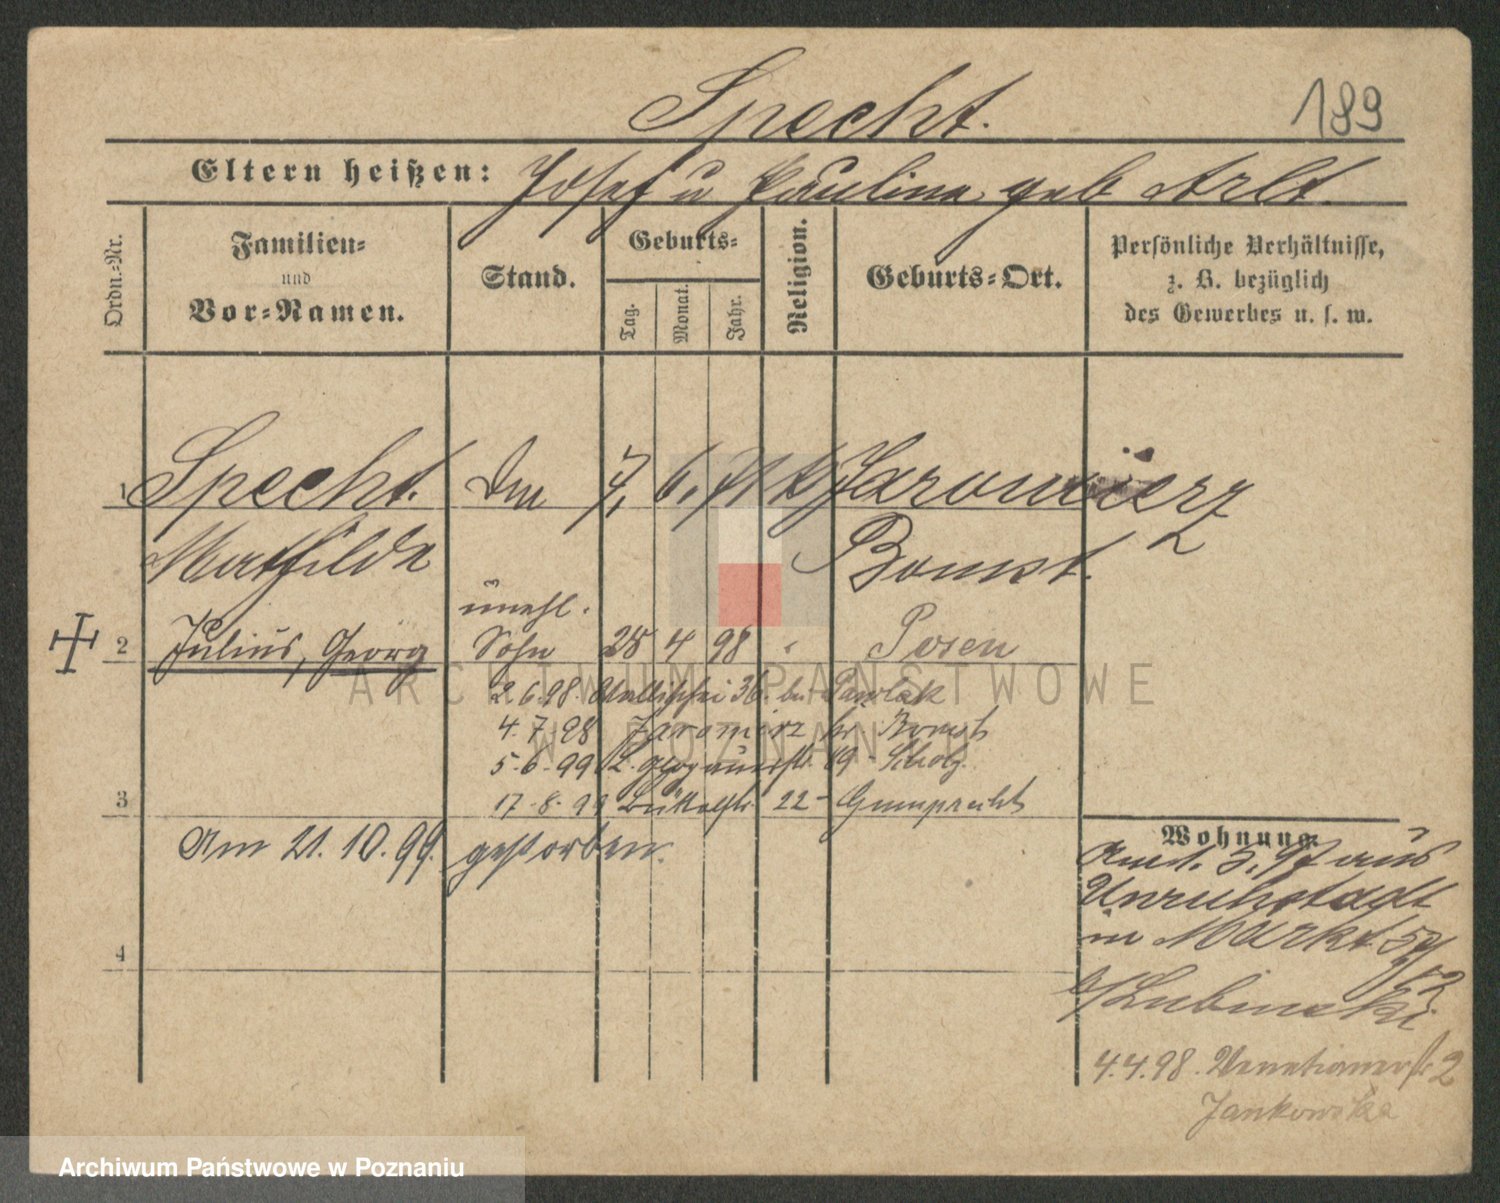 Specht.
189
Eltern heißen: Josef u Paulina geb Arlt.
Ordn.-Nr.
Familien-
und
Vor-Namen.
Stand.
Geburts-
Tag.
Monat.
Jahr.
Religion.
Geburts-Ort.
Persönliche Verhältnisse,
z. B. bezüglich
des Gewerbes u. s. w.
1 Specht. 7. 6. 71 k Jaromierz
Mathilde Bomst.
unehl.
2 Julius, Georg Sohn 25 4 98 Posen
2.6.98. Wallischei 36. bei Pawlak
4.7.98 Jaromierz Kr Bomst
5.6.99 Glogauerstr. 89 Scholz
3 17.8.99 22 Gumprecht
Am 21.10.99. gestorben.
Wohnung.
Am 1.3.97 aus
Unruhstadt
in Markt 52
b/Lubinski
4
4.4.98. Venetianerstr 2
Jankowska
ARCHIWUM PAŃSTWOWE
W POZNANIU
Archiwum Państwowe w Poznaniu